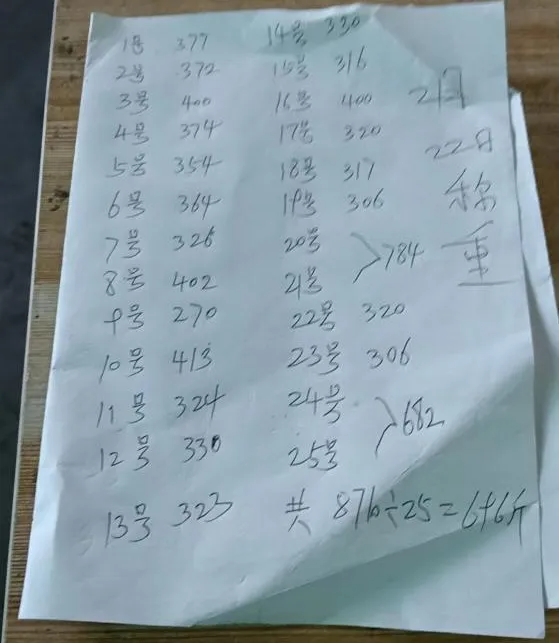 1号 377
2号 372
3号 400
4号 374
5号 354
6号 364
7号 326
8号 402
9号 270
10号 413
11号 324
12号 330
13号 323
14号 330
15号 316
16号 400
17号 320
18号 317
19号 306
20号
21号 784
22号 320
23号 306
24号
25号 682
共 8710÷25=696斤
2月
22日
称
重